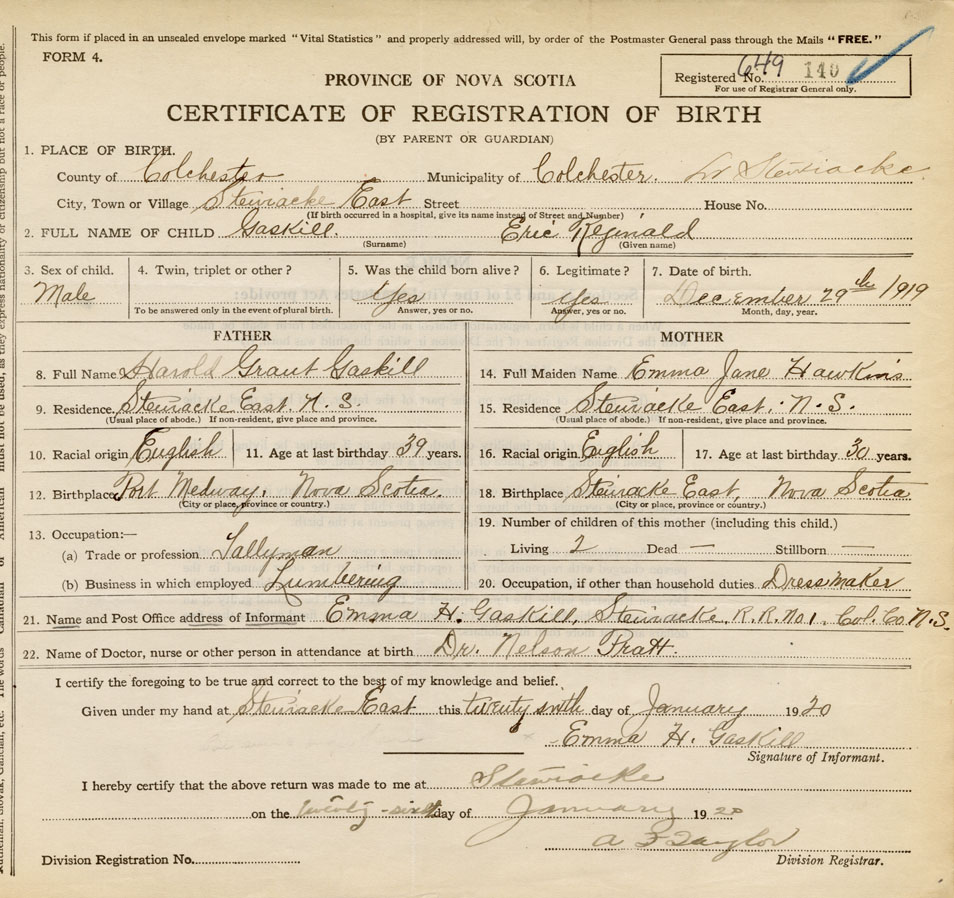 This form if placed in an unsealed envelope marked "Vital Statistics" and properly addressed will, by order of the Postmaster General pass through the Mails "FREE."
FORM 4.
PROVINCE OF NOVA SCOTIA
Registered No. 649 140
For use of Registrar General only.
CERTIFICATE OF REGISTRATION OF BIRTH
(BY PARENT OR GUARDIAN)
1. PLACE OF BIRTH.
County of Colchester Municipality of Colchester. Stewiacke
City, Town or Village Stewiacke East Street House No.
(If birth occurred in a hospital, give its name instead of Street and Number)
2. FULL NAME OF CHILD Gaskill. Eric Reginald
(Surname) (Given name)
3. Sex of child. 4. Twin, triplet or other? 5. Was the child born alive? 6. Legitimate? 7. Date of birth.
Male Yes Yes. December 29th 1919
To be answered only in the event of plural birth. Answer, yes or no. Answer, yes or no. Month, day, year.
FATHER
8. Full Name Harold Grant Gaskill
9. Residence Stewiacke East. N.S.
(Usual place of abode.) If non-resident, give place and province.
10. Racial origin English 11. Age at last birthday 39 years.
12. Birthplace Port Medway, Nova Scotia.
(City or place, province or country.)
13. Occupation:—
(a) Trade or profession Tallyman
(b) Business in which employed Lumbering
MOTHER
14. Full Maiden Name Emma Jane Hawkins
15. Residence Stewiacke East. N.S.
(Usual place of abode.) If non-resident, give place and province.
16. Racial origin English 17. Age at last birthday 30 years.
18. Birthplace Stewiacke East, Nova Scotia
(City or place, province or country.)
19. Number of children of this mother (including this child.)
Living 2 Dead — Stillborn —
20. Occupation, if other than household duties Dressmaker
21. Name and Post Office address of Informant Emma H. Gaskill, Stewiacke, R.R. No 1, Col. Co. N.S.
22. Name of Doctor, nurse or other person in attendance at birth Dr. Nelson Pratt.
I certify the foregoing to be true and correct to the best of my knowledge and belief.
Given under my hand at Stewiacke East this twenty sixth day of January 1920
Emma H. Gaskill
Signature of Informant.
I hereby certify that the above return was made to me at Stewiacke
on the twenty-sixth day of January 1920
A Taylor
Division Registration No. Division Registrar.